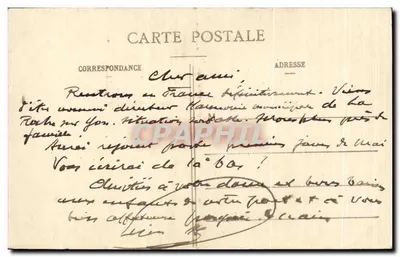 CARTE POSTALE
CORRESPONDANCE
ADRESSE
Cher ami
Rentrons en France définitivement. Viens
d'être nommé directeur Harmonie municipale de La
Roche sur Yon. Situation . Serons plus près de
famille!
Aurai rejoint poste premiers jours de mai
Vous écrirai de là bas!
Amitiés à votre dame et bons baisers
aux enfants de votre part et à vous
bien affectueuse poignée de mains
CPARAMA